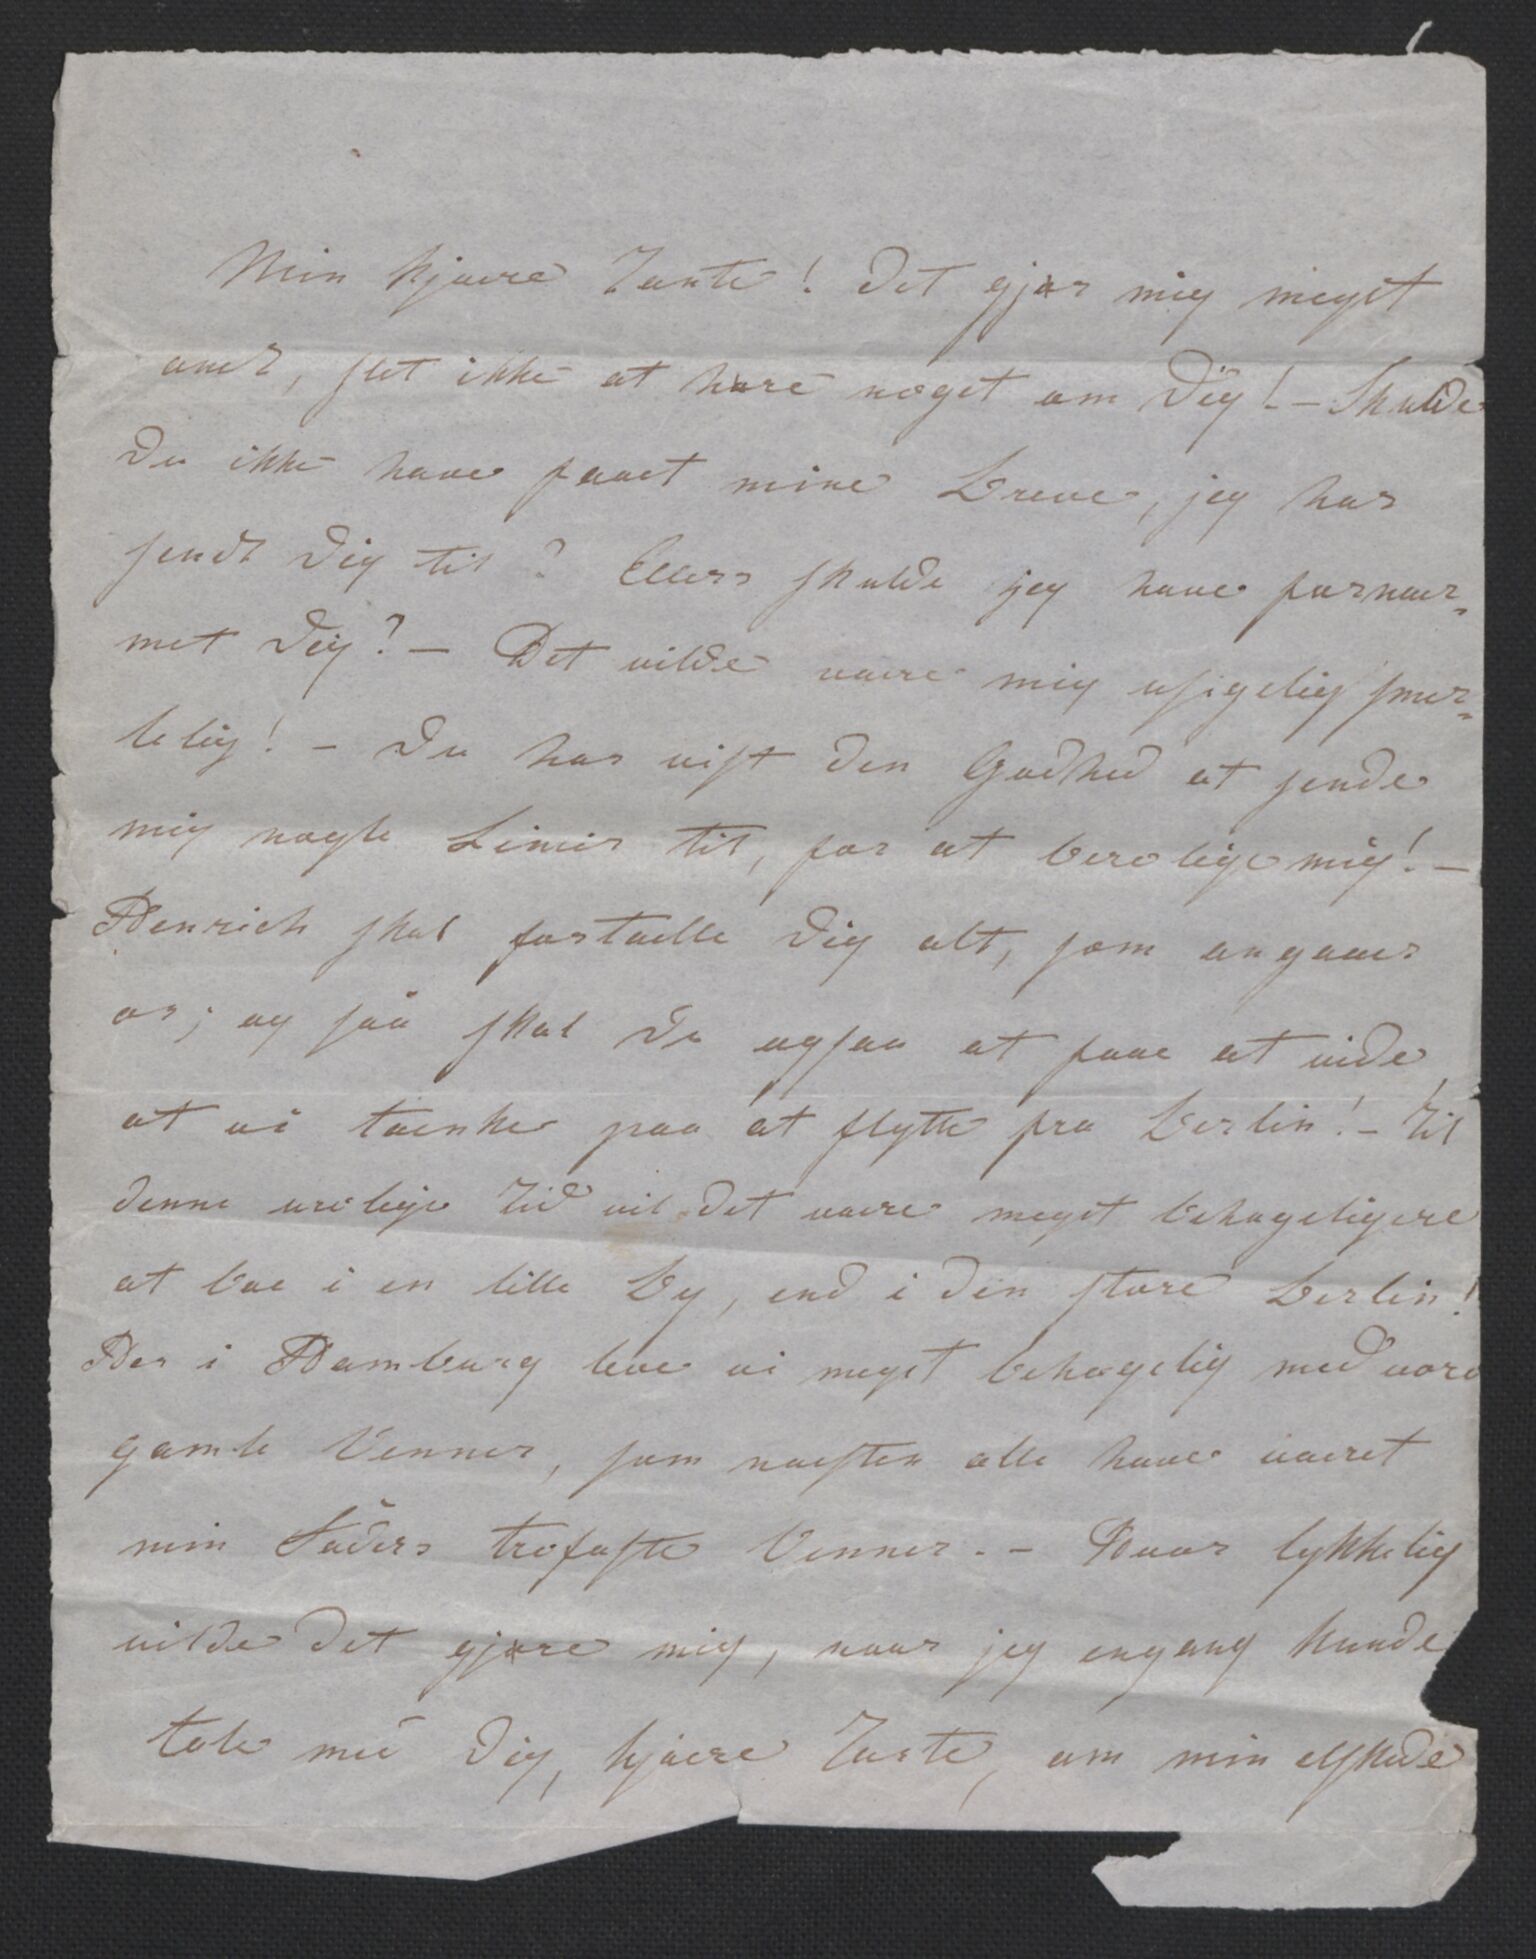 Min kjaere Tante! Det gjør mig meget
ondt, slet ikke at høre noget om Dig! – Skulde
Du ikke have faaet mine Breve, jeg har
sendt Dig til? Ellers skulde jeg have fornær-
met Dig? – Det vilde være mig usigelig smer-
telig! – Du har vist den Godhed at sende
mig nogle Linier til, for at berolige mig! –
Henrich skal fortælle Dig alt, som angaaer
os; og såå skal Du ogsaa at faae at vide
at vi tænke paa at flytte fra Berlin! – Til
denne urolige Tid vil det være meget behageligere
at boe i en lille By, end i den store Berlin!
Her i Hamburg leve vi meget behagelig med vore
gamle Venner, som næsten alle have været
min Faders trofaste Venner. – Hvor lykkelig
vilde det gjøre mig, naar jeg engang kunde
tale med Dig, kjære Tante, om min elskede